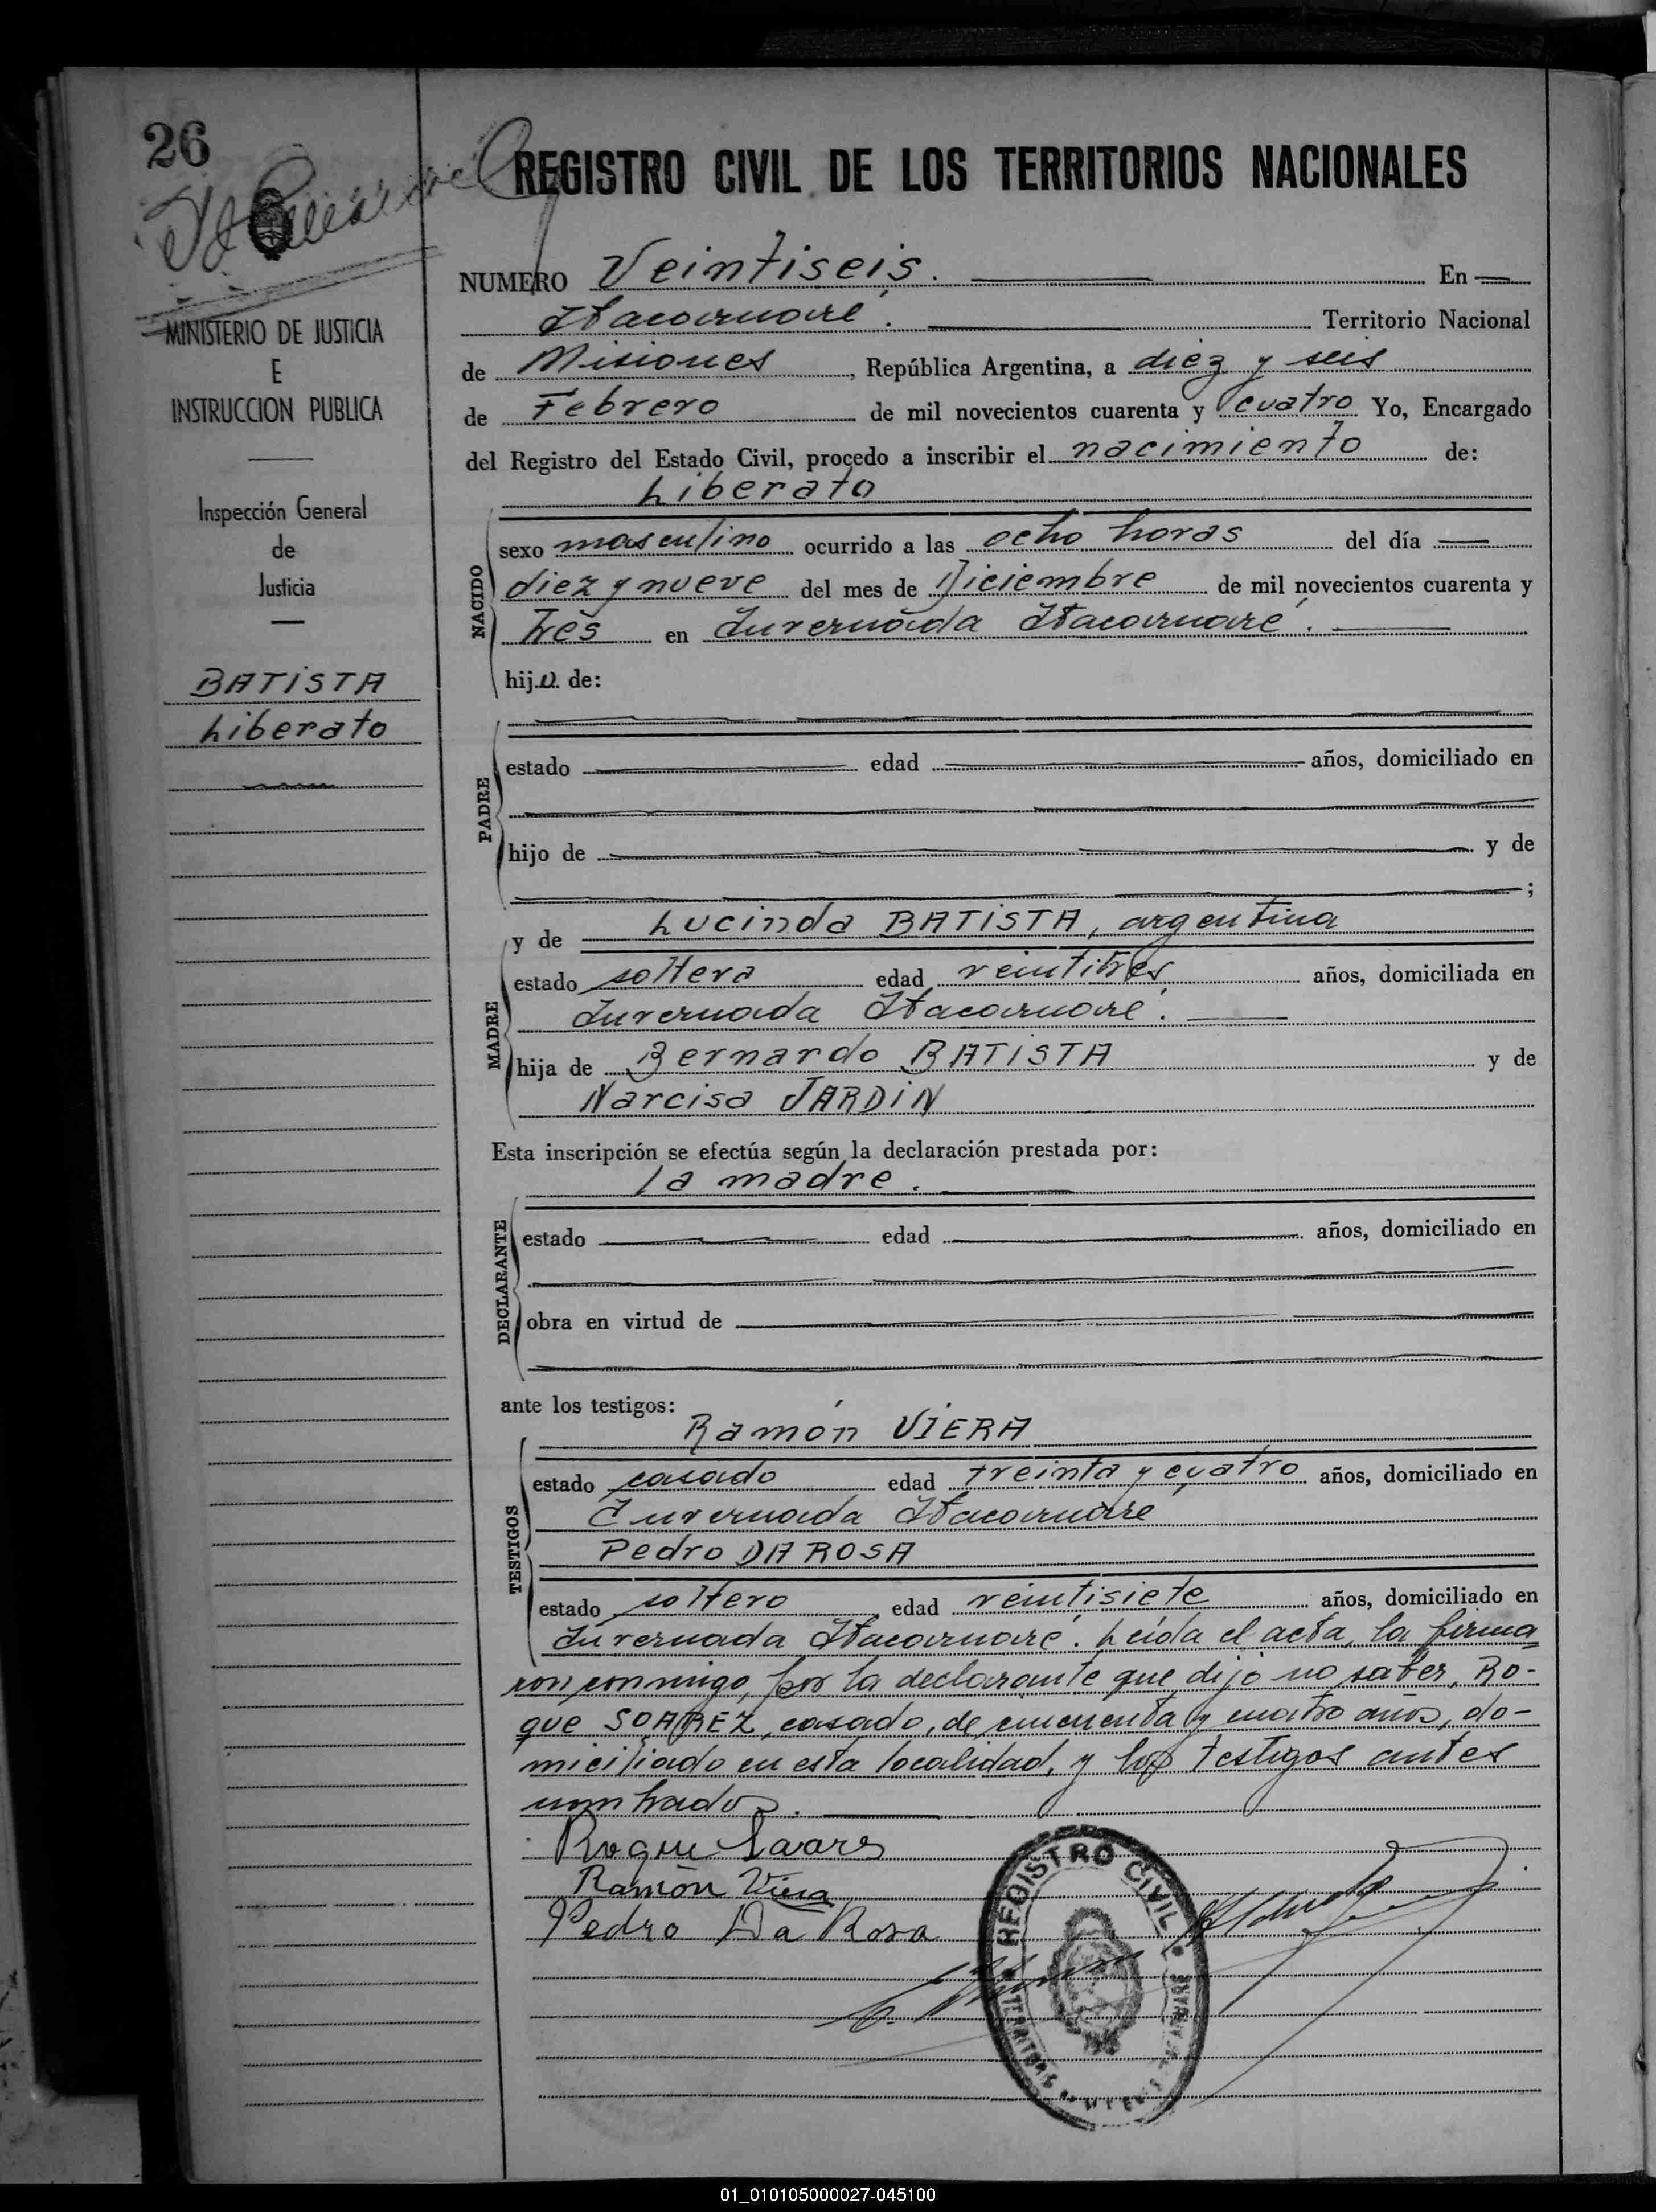 26
REGISTRO CIVIL DE LOS TERRITORIOS NACIONALES
NUMERO Veintiseis. En
Itacaruaré. Territorio Nacional
de Misiones, República Argentina, a diez y seis
de Febrero de mil novecientos cuarenta y cuatro Yo, Encargado
del Registro del Estado Civil, procedo a inscribir el nacimiento de:
Liberato
MINISTERIO DE JUSTICIA
E
INSTRUCCION PUBLICA
Inspección General
de
Justicia
BATISTA
Liberato
NACIDO
sexo masculino ocurrido a las ocho horas del día
diez y nueve del mes de Diciembre de mil novecientos cuarenta y
tres en Invernada Itacaruaré.
hij.o. de:
PADRE
estado edad años, domiciliado en
hijo de y de
;
y de Lucinda BATISTA, argentina
MADRE
estado soltera edad veintitres años, domiciliada en
Invernada Itacaruaré.
hija de Bernardo BATISTA y de
Narcisa JARDIN
Esta inscripción se efectúa según la declaración prestada por:
la madre.
DECLARANTE
estado edad años, domiciliado en
obra en virtud de
ante los testigos:
Ramón VIERA
TESTIGOS
estado casado edad treinta y cuatro años, domiciliado en
Invernada Itacaruaré
Pedro DA ROSA
estado soltero edad veintisiete años, domiciliado en
Invernada Itacaruaré. Leída el acta, la firma
ron conmigo, por la declarante que dijo no saber, Ro-
que SOAREZ, casado, de cincuenta y cuatro años, do-
miciliado en esta localidad, y los testigos antes
nombrados.
Roque Soares
Ramón Viera
Pedro Da Rosa
REGISTRO CIVIL
01_010105000027-045100